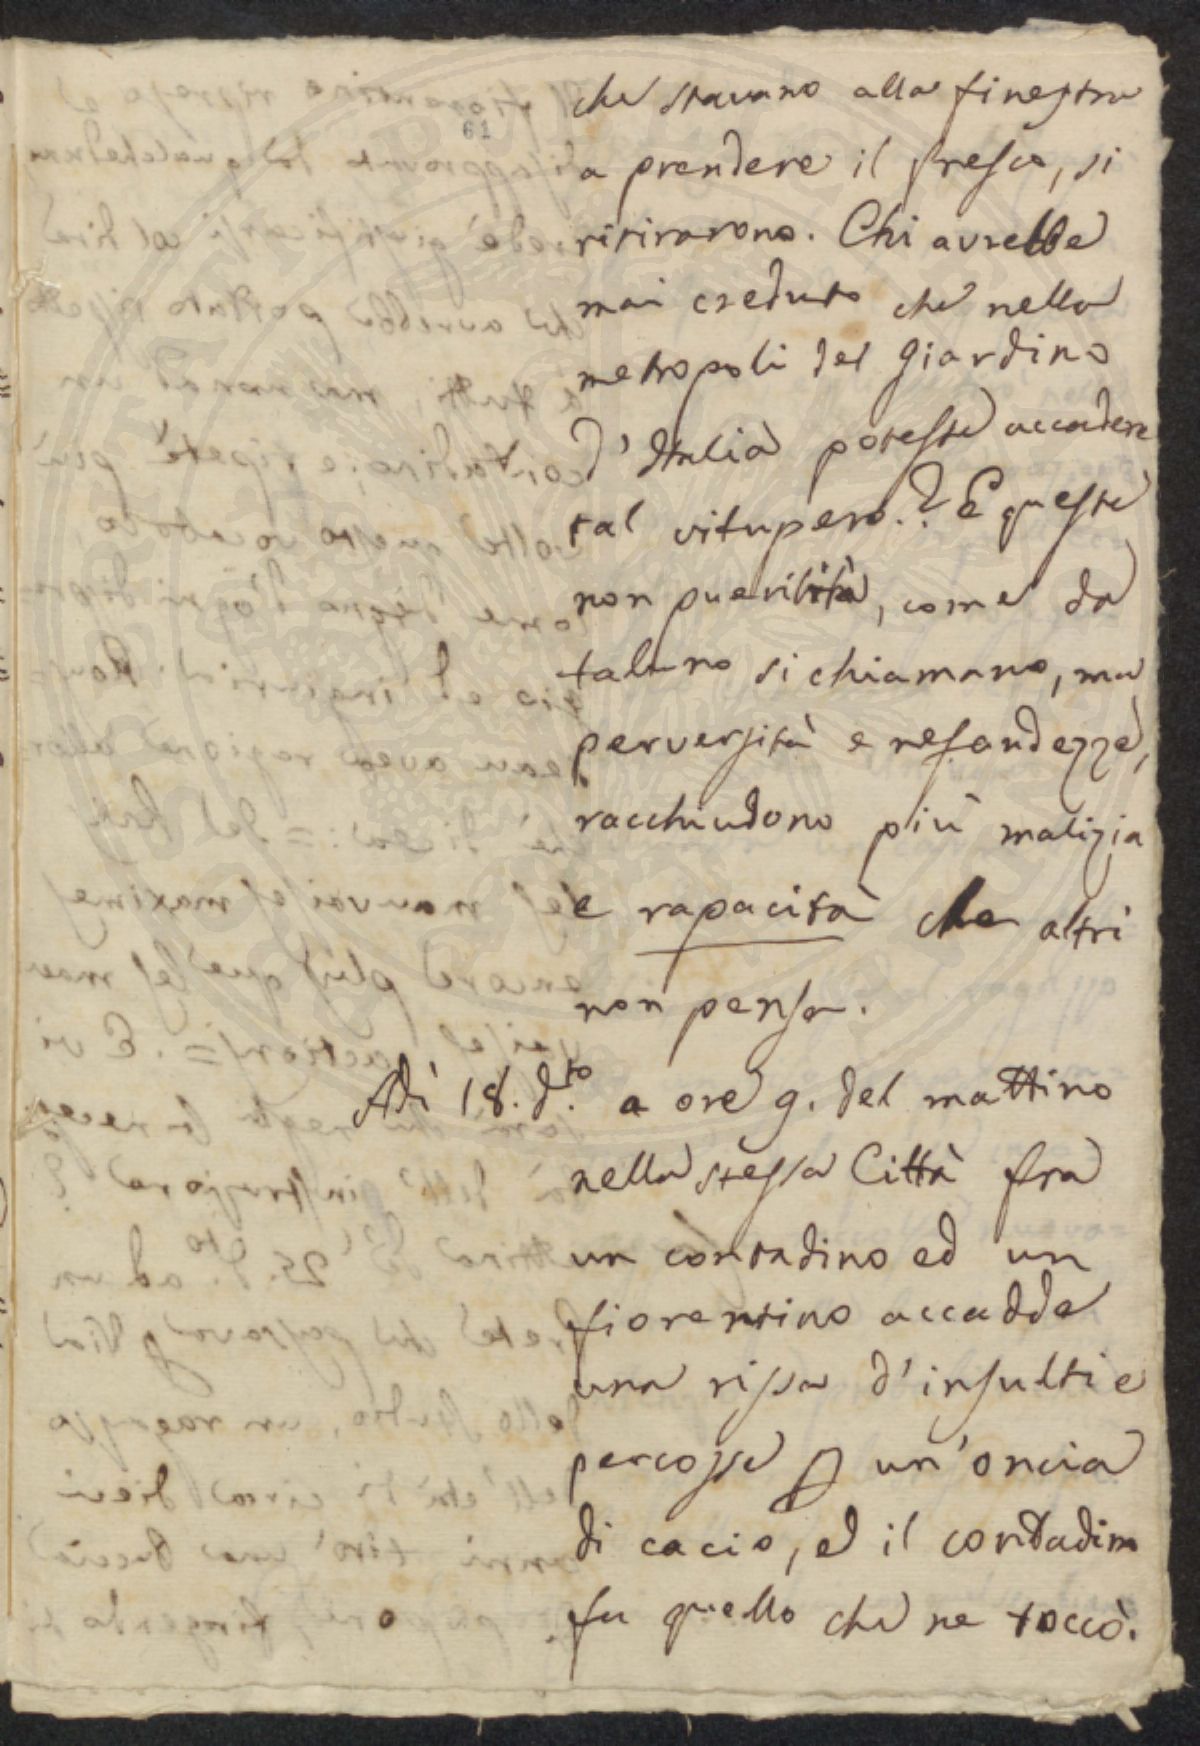 61
che stavano alla finestra
a prendere il fresco, si
ritirarono. Chi avrebbe
mai creduto che nella
metropoli del Giardino
d'Italia potesse accadere
tal vitupero.? E queste
non puerilità, come da
taluno si chiamano, ma
perversità e nefandezze,
racchiudono più malizia
e rapacità che altri
non pensa.
Adì 18. d.to a ore 9. del mattino
nella stessa Città fra
un contadino ed un
fiorentino accadde
una rissa d'insulti e
percosse p un'oncia
di cacio, ed il contadino
fu quello che ne toccò.